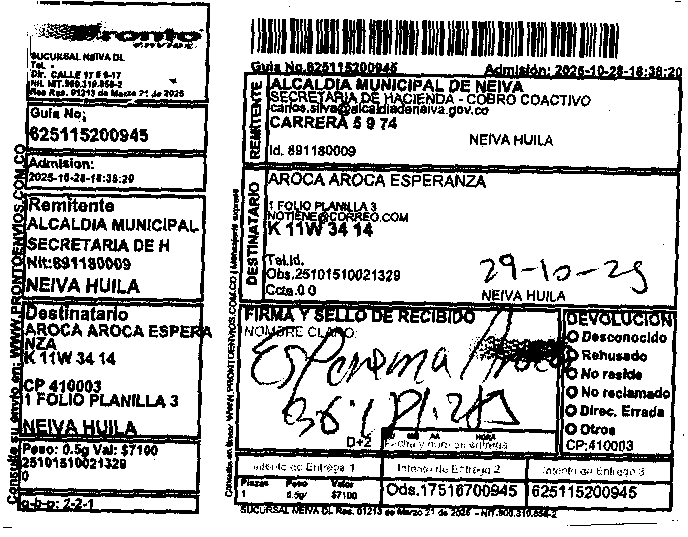 Pronto
envios
SUCURSAL NEIVA DL
Tel. -
Dir. CALLE 17 5 9-17
Nit. NIT.900.310.856-2
Res Res. 01213 de Marzo 21 de 2025
Guia No;
625115200945
Admision:
2025-10-28-16:38:20
Remitente
ALCALDIA MUNICIPAL
SECRETARIA DE H
Nit:891180009
NEIVA HUILA
Destinatario
AROCA AROCA ESPERA
NZA
K 11W 34 14
CP 410003
1 FOLIO PLANILLA 3
NEIVA HUILA
Peso: 0.5g Val: $7100
25101510021329
0
g-b-p: 2-2-1
Consulte su envio en: WWW.PRONTOENVIOS.COM.CO
Guia No.625115200945 Admisión: 2025-10-28-16:38:20
REMITENTE
ALCALDIA MUNICIPAL DE NEIVA
SECRETARIA DE HACIENDA - COBRO COACTIVO
carlos.silva@alcaldianeiva.gov.co
CARRERA 5 9 74
NEIVA HUILA
Id. 891180009
DESTINATARIO
AROCA AROCA ESPERANZA
1 FOLIO PLANILLA 3
NOTIENE@CORREO.COM
K 11W 34 14
Tel.Id.
Obs.25101510021329
Ccta.0 0
29-10-25
NEIVA HUILA
FIRMA Y SELLO DE RECIBIDO
NOMBRE CLARO:
Esperanza Aroca
D+2
Fecha y hora en entrega
DEVOLUCION
Desconocido
Rehusado
No reside
No reclamado
Direc. Errada
Otros
CP:410003
Intento de Entrega 1 Intento de Entrega 2 Intento de Entrega 3
Piezas Peso Valor
1 0.5g $7100
Ods.17516700945 625115200945
SUCURSAL NEIVA DL Res. 01213 de Marzo 21 de 2025 - NIT.900.310.856-2